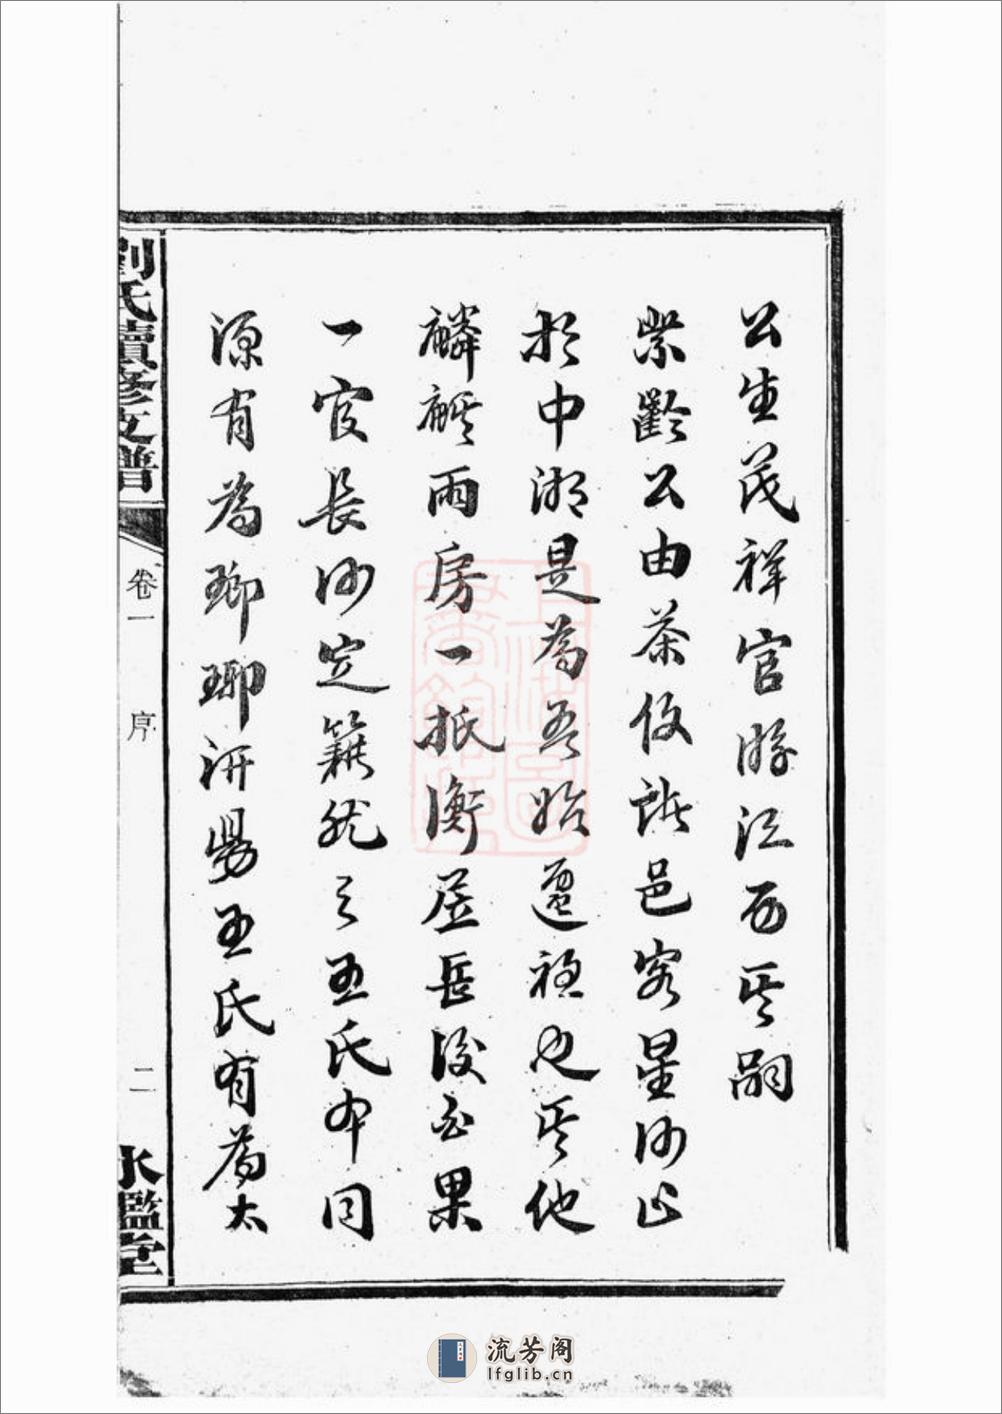 公生茂祥官游江西其嗣
紫齡公由茶攸諸邑客星沙止
於中湘是為吾始遷祖也其他
麟麒兩房一抵衡居長後者果
一官長沙定籍然之王氏本同
源有為瑯琊派易王氏有為太
劉氏續修支譜
卷一
序
二
水鑑堂
流芳阁
lfglib.cn